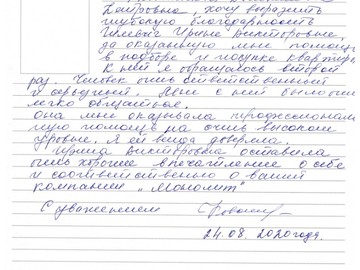 Баировна, хочу выразить
глубокую благодарность
Ирине Викторовне,
за оказанную мне помощь
в подборе и покупке квартиры
К ней я обращалась второй
раз. Человек очень ответственный
и серьезный. Мне с ней было очень
легко общаться.
Она мне оказывала профессиональ
ную помощь на очень высоком
уровне. Я ей всегда доверяла.
Ирина Викторовна оставила
очень хорошее впечатление о себе
и соответственно о вашей
компании "Монолит"
С уважением
24.08.2020 года.